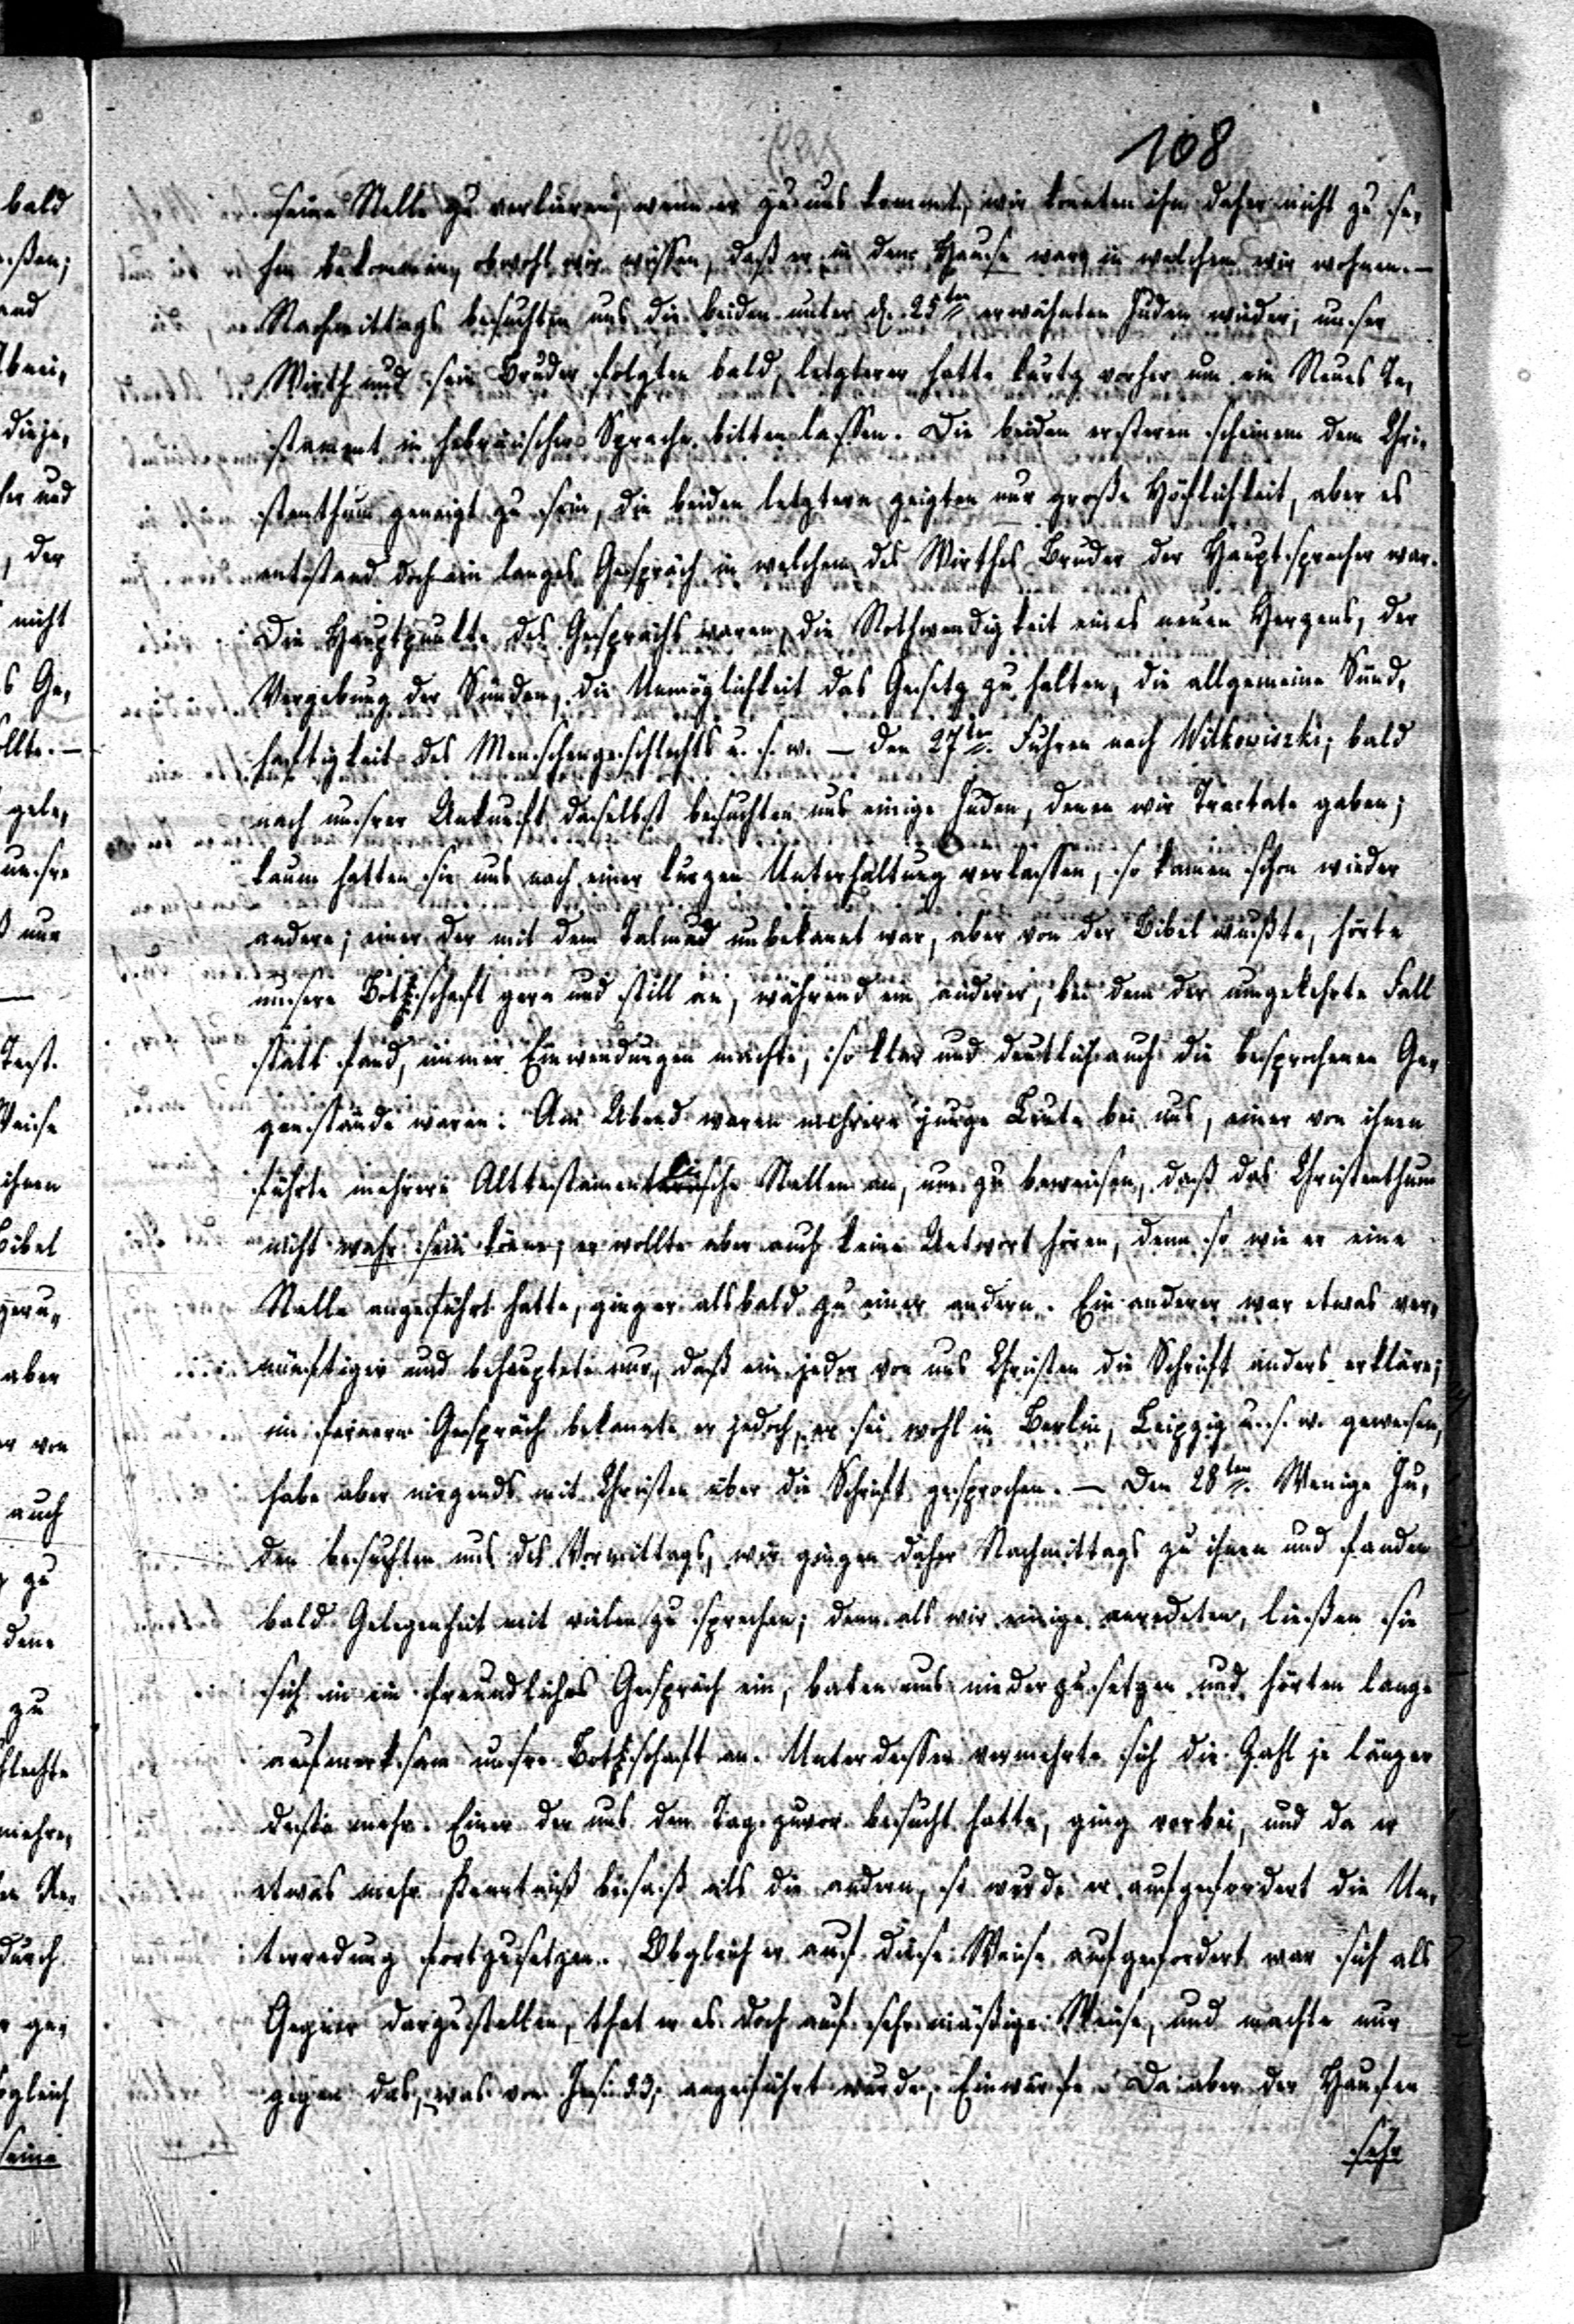 108
seine Stelle zu verlieren, wenn er zu uns kommt, wir konnten ihn daher nicht zu se-
hen bekommen, obwohl wir wissen, daß er in dem Hause war, in welchem wir wohnen. —
Nachmittags besuchten uns die beiden unter d. 25ten erwähnten Juden wieder; unser
Wirth und sein Bruder folgten bald, letzterer hatte kurtz vorher um ein Neues Te-
stament in hebräischer Sprache bitten lassen. Die beiden ersteren scheinen dem Chri-
stenthum geneigt zu sein, die beiden letztern zeigten nur große Höflichkeit, aber es
entstand doch ein langes Gespräch in welchem des Wirthes Bruder der Hauptsprecher war.
Die Hauptpunkte des Gesprächs waren, die Nothwendigkeit eines neuen Herzens, der
Vergebung der Sünden, die Unmöglichkeit das Gesetz zu halten, die allgemeine Sünd-
haftigkeit des Menschengeschlechts u. s. w. — Den 27ten. Fuhren nach Wilkowiszki; bald
nach unsrer Ankunft daselbst besuchten uns einige Juden, denen wir Tractate gaben;
kaum hatten sie uns nach einer kurzen Unterhaltung verlassen, so kamen schon wieder
andere; einer der mit dem Talmud unbekannt war, aber von der Bibel wußte, hörte
unsere Bothschaft gern und still an, während ein anderer, bei dem der umgekehrte Fall
statt fand, immer Einwendungen machte, so klar und deutlich auch die besprochenen Ge-
genstände waren. Am Abend waren mehrere junge Leute bei uns, einer von ihnen
führte mehrere Alttestamentliche Stellen an, um zu beweisen, daß das Christenthum
nicht wahr sein könne; er wollte aber auch keine Antwort hören, denn so wie er eine
Stelle angeführt hatte, ging er alsbald zu einer andern. Ein anderer war etwas ver-
nünftiger und behauptete nur, daß ein jeder von uns Christen die Schrift anders erkläre;
im fernern Gespräch bekannte er jedoch, er sei wohl in Berlin, Leipzig u. s. w. gewesen,
habe aber nirgends mit Christen über die Schrift gesprochen. — Den 28ten. Wenige Ju-
den besuchten uns des Vormittags, wir gingen daher Nachmittags zu ihnen und fanden
bald Gelegenheit mit vielen zu sprechen; denn als wir einige anredeten, ließen sie
sich in ein freundliches Gespräch ein, baten uns niederzusetzen und hörten lange
aufmerksam unsre Bothschaft an. Unterdessen vermehrte sich die Zahl je länger
desto mehr. Einer der uns den Tag zuvor besucht hatte, ging vorbei, und da er
etwas mehr Kenntniß besaß als die andern, so wurde er aufgefordert die Un-
terredung fortzusetzen. Obgleich er auf diese Weise aufgefordert war sich als
Gegner darzustellen, that er es doch auf sehr mäßige Weise, und machte nur
gegen das, was von Jes: 53, angeführt wurde, Einwürfe. Da aber der Haufen
sehr